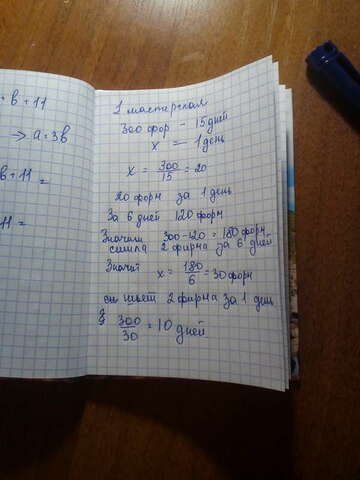 в + 11
→ а = 3в
в + 11 =
11 =
1 мастерская
300 фор - 15 дней
х — 1 день
х = 300/15 = 20
20 форм за 1 день
За 6 дней 120 форм
Значит 300-120 = 180 форм
сшила 2 фирма за 6 дней
Значит х = 180/6 = 30 форм
шьет 2 фирма за 1 день
300/30 = 10 дней